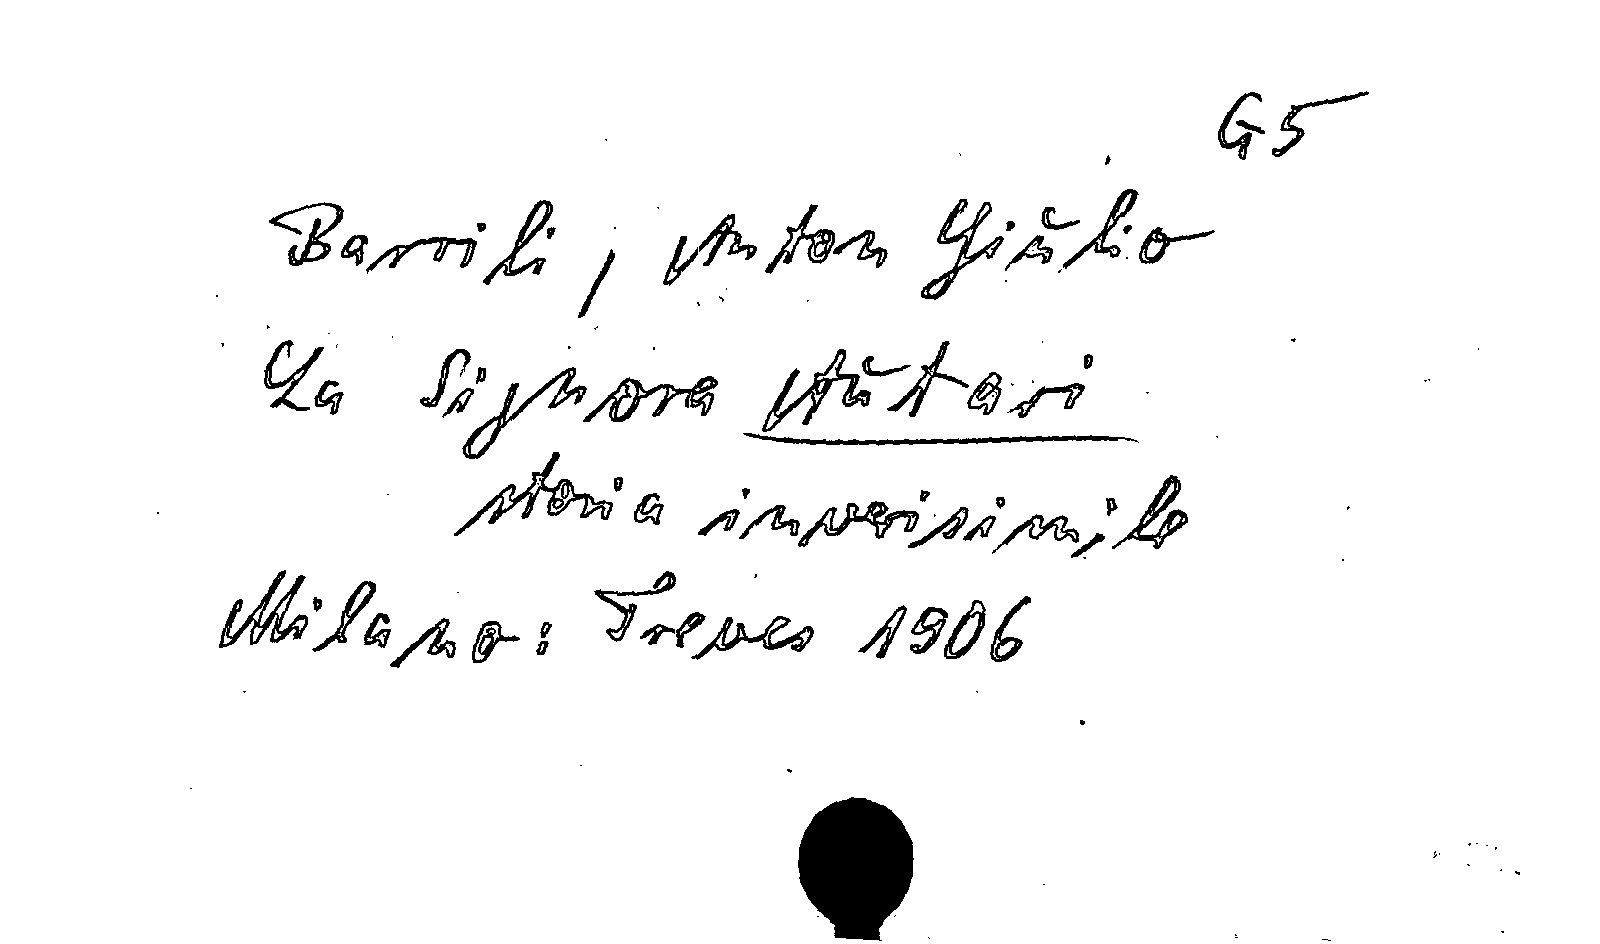 G5
Barrili, Anton Giulio
La Signora Autari
storia inverisimile
Milano: Treves 1906